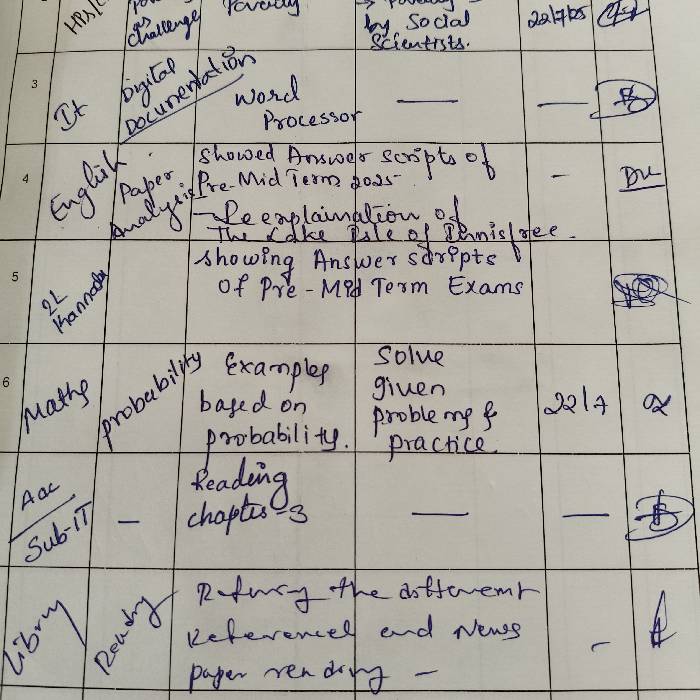 HPS/
Poverty
as
challenge
Poverty
→ Poverty
by Social
Scientists.
22/7/25
3
It
Digital
Documentation
Word
Processor
4
English
Paper
Analysis
Showed Answer scripts of
Pre-Mid Term 2025
- Re explaination of
The Lake Isle of Innisfree.
5
2L
Kannada
Showing Answer scripts
of Pre-Mid Term Exams
6
Maths
probability
Examples
based on
probability.
Solve
given
problems &
practice
22/7
Aac
Sub-IT
Reading
chapter-3
Library
Reading
Refering the different
References and News
paper reading -